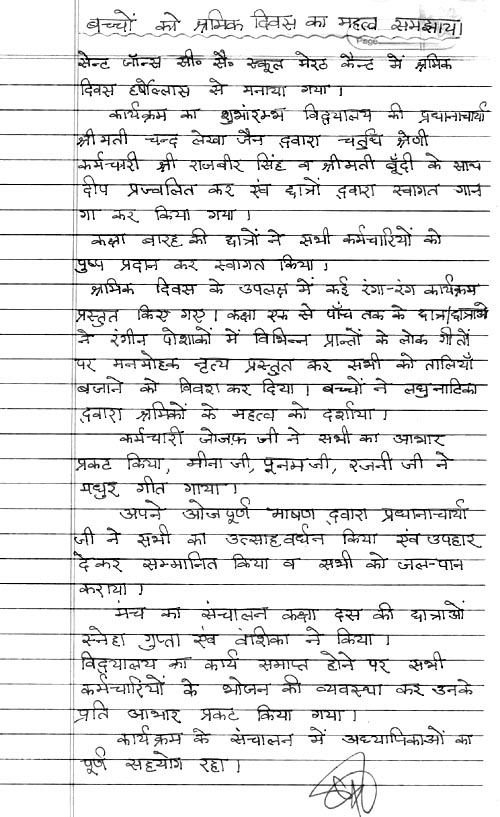 बच्चों को श्रमिक दिवस का महत्व समझाया
Page
सेन्ट जॉन्स सी॰ सै॰ स्कूल मेरठ कैन्ट में श्रमिक
दिवस हर्षोल्लास से मनाया गया।
कार्यक्रम का शुभारम्भ विद्यालय की प्रधानाचार्या
श्रीमती चन्द्र लेखा जैन द्वारा चर्तुथ श्रेणी
कर्मचारी श्री राजवीर सिंह व श्रीमती बूँदी के साथ
दीप प्रज्वलित कर एंव छात्रों द्वारा स्वागत गान
गा कर किया गया।
कक्षा बारह की छात्रों ने सभी कर्मचारियों को
पुष्प प्रदान कर स्वागत किया।
श्रमिक दिवस के उपलक्ष में कई रंगा-रंग कार्यक्रम
प्रस्तुत किए गए। कक्षा एक से पाँच तक के छात्र/छात्राओं
ने रंगीन पोशाकों में विभिन्न प्रान्तों के लोक गीतों
पर मनमोहक नृत्य प्रस्तुत कर सभी को तालियाँ
बजाने को विवश कर दिया। बच्चों ने लघुनाटिका
द्वारा श्रमिकों के महत्व को दर्शाया।
कर्मचारी जोजफ जी ने सभी का आभार
प्रकट किया, मीना जी, पूनम जी, रजनी जी ने
मधुर गीत गाया।
अपने ओजपूर्ण भाषण द्वारा प्रधानाचार्या
जी ने सभी का उत्साहवर्धन किया एंव उपहार
देकर सम्मानित किया व सभी को जल-पान
कराया।
मंच का संचालन कक्षा दस की छात्राओं
स्नेहा गुप्ता एंव वंशिका ने किया।
विद्यालय का कार्य समाप्त होने पर सभी
कर्मचारियों के भोजन की व्यवस्था कर उनके
प्रति आभार प्रकट किया गया।
कार्यक्रम के संचालन में अध्यापिकाओं का
पूर्ण सहयोग रहा।